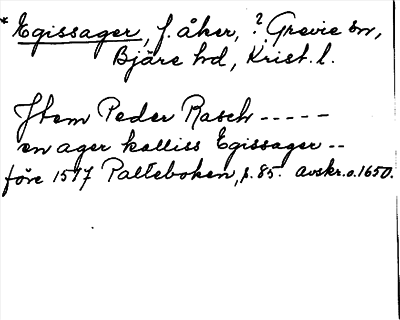 * Egissager, f. åker, ? Grevie sn,
Bjäre hd, Krist. l.
Jtem Peder Rasch -----
en ager kalliss Egissager --
före 1577 Palteboken, s. 85. avskr. o. 1650.